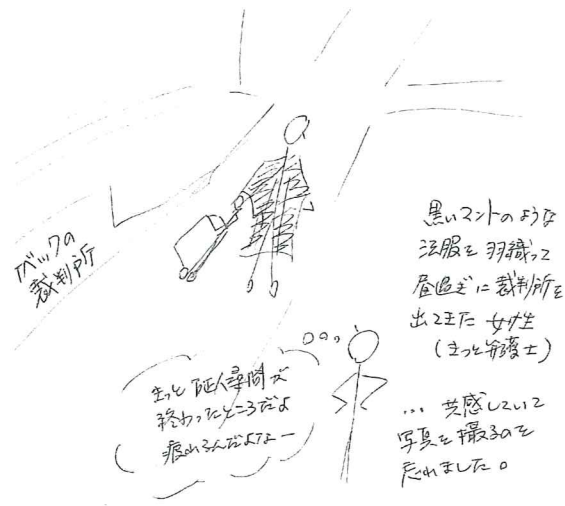 ケベックの
裁判所
黒いマントのような
法服を羽織って
昼過ぎに裁判所を
出てきた女性
(きっと弁護士)
きっと証人尋問が
終わったところだよ
疲れるんだよなー
... 共感していて
写真を撮るのを
忘れました。